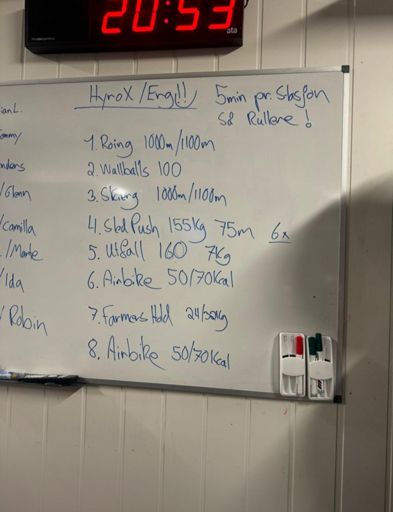 20:53
HyroX/Eng!!!
5min pr. Stasjon
så Rullere!
1. Roing 1000m/1100m
2. Wallballs 100
3. Skierg 1000m/1100m
4. Sled Push 155kg 75m 6x
5. Utfall 160 7kg
6. Airbike 50/70Kcal
7. Farmers Hold 24/32kg
8. Airbike 50/70Kcal
ian L.
ommy
nders
/Glenn
/Camilla
./Marte
/Ida
/Robin